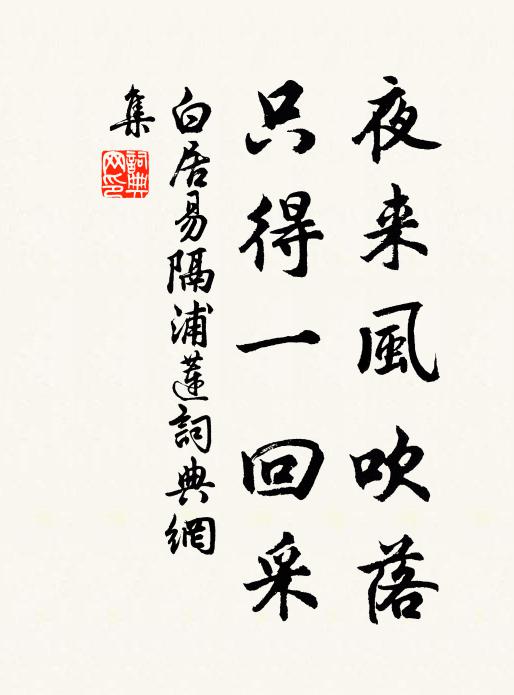 夜来風吹落
只得一回采
白居易隔浦蓮詞典網
集
詞典网印